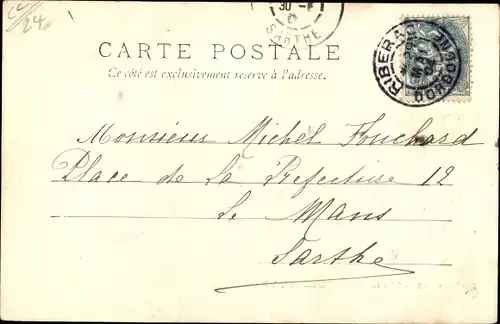 24
30 - 
SARTHE
RIBERAC
MAI
DORDOGNE
CARTE POSTALE
Ce côté est exclusivement reservé à l'adresse.
Monsieur Michel Fouchard
Place de la Prefecture 12
Le Mans
Sarthe